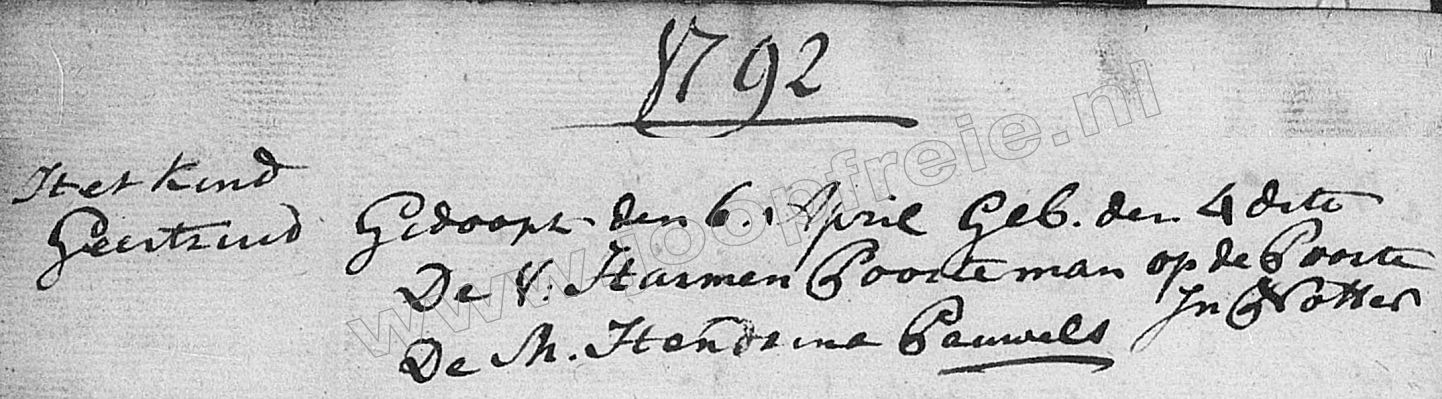 1792
Het Kind
Geertruid Gedoopt den 6. April Geb. den 4 dito
De V. Harmen Poorteman op de Poorte
In Notter
De M. Hendrina Pauwels
www.joopfreie.nl